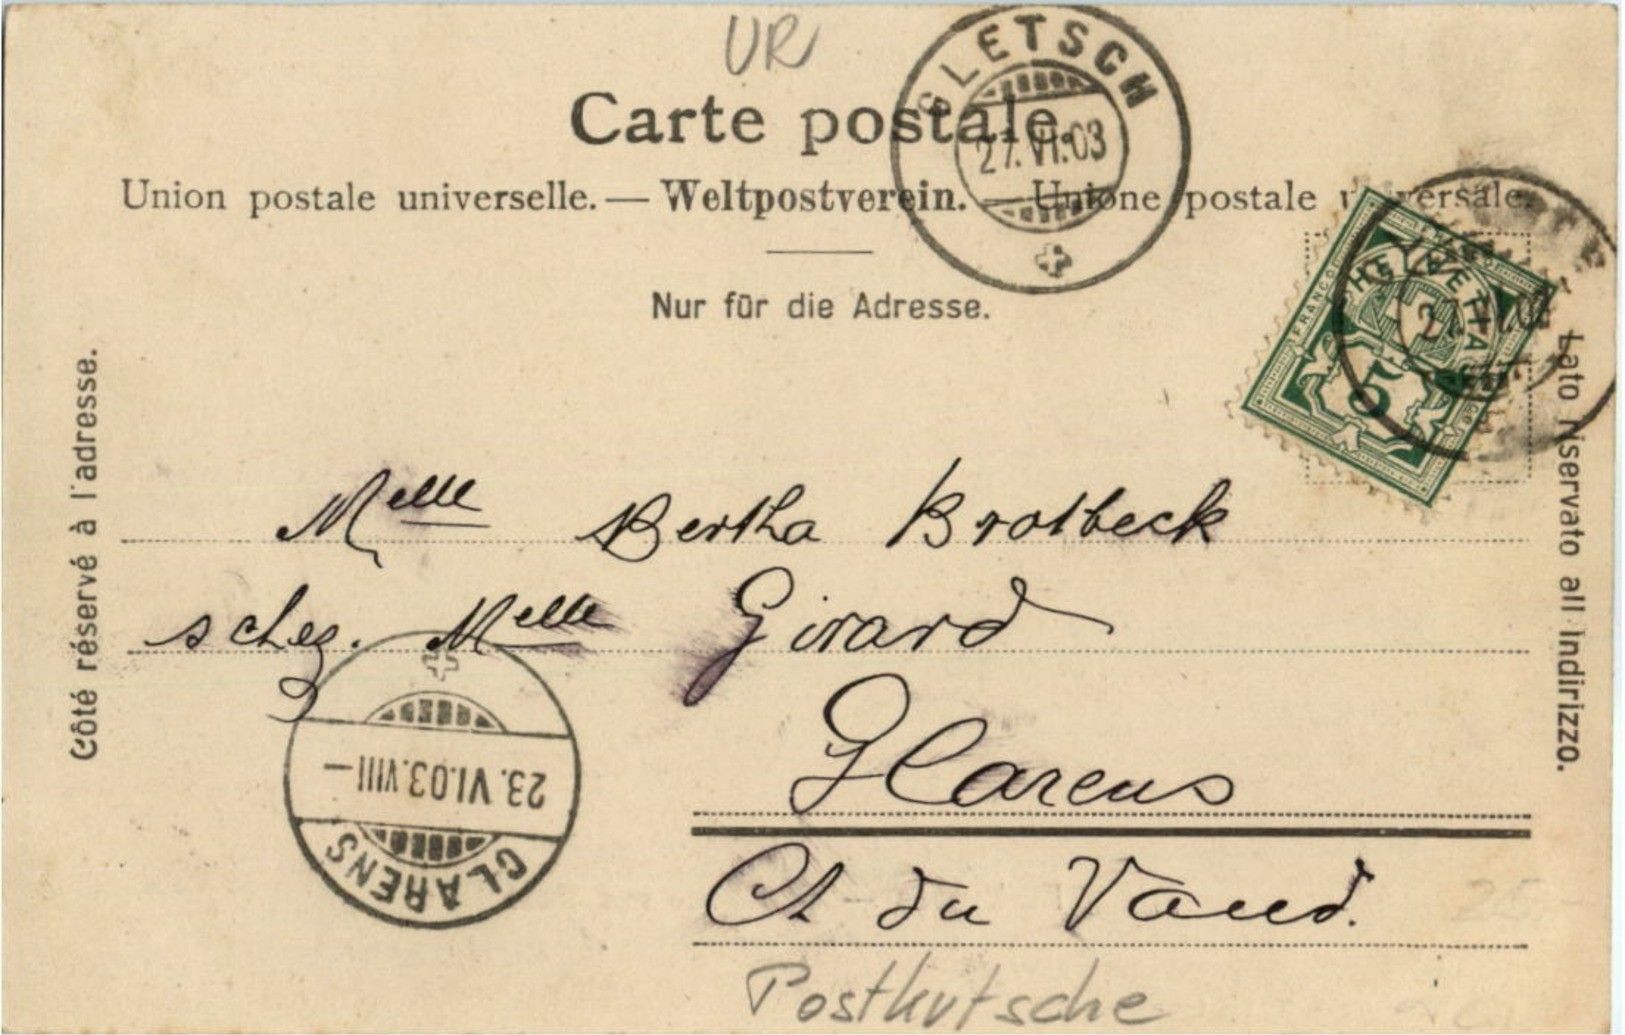 UR
GLETSCH
27.VI.03
Carte postale.
Union postale universelle. — Weltpostverein. — Unione postale universale.
Nur für die Adresse.
Côté réservé à l'adresse.
Lato riservato all Indirizzo.
FRANCO
HELVETIA
5
Melle Bertha Brotbeck
schez. Melle Girard
Clarens
Ct du Vaud.
23.VI.03.VIII—
CLARENS
Postkutsche